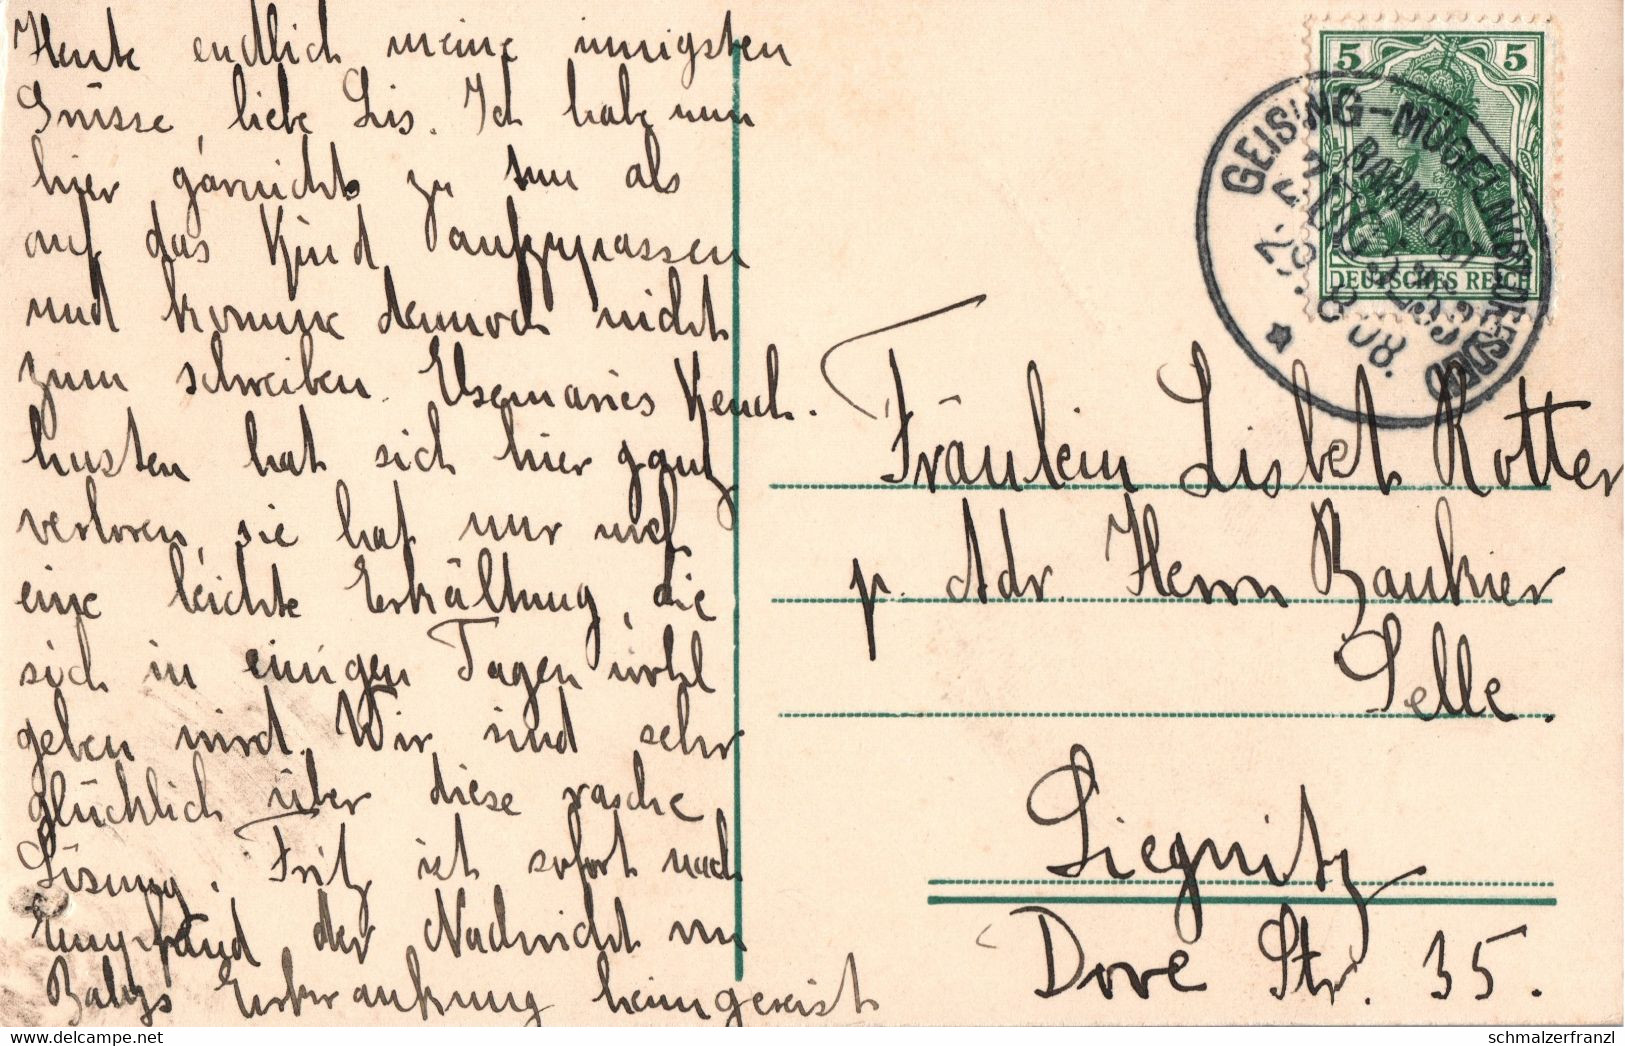 Heute endlich meine innigsten
Grüsse, liebe Lis. Ich habe nun
hier garnichts zu tun als
auf das Kind aufzupassen
und komme dennoch nicht
zum schreiben. Ilsemaries Keuch-
husten hat sich hier ganz
verloren, sie hat nur noch
eine leichte Erkältung, die
sich in einigen Tagen wohl
geben wird. Wir sind sehr
glücklich über diese rasche
Lösung. Fritz ist sofort nach
Empfand der Nachricht von
Babys Erkrankung heimgereist
5 5
DEUTSCHES REICH
GEISING-MÜGELN (BZ. DRESDEN)
BAHNPOST
ZUG
8 08.
Fräulein Lisbet Rotter
p. Adr. Herrn Bankier
Selle.
Liegnitz
Dove Str. 35.
schmalzerfranzl